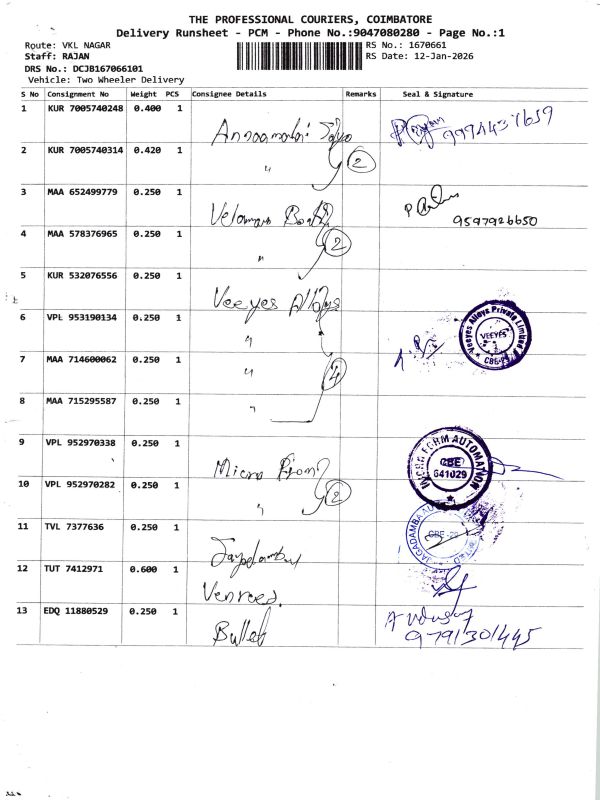 THE PROFESSIONAL COURIERS, COIMBATORE
Delivery Runsheet - PCM - Phone No.:9047080280 - Page No.:1
Route: VKL NAGAR
RS No.: 1670661
Staff: RAJAN
RS Date: 12-Jan-2026
DRS No.: DCJB167066101
Vehicle: Two Wheeler Delivery
S No Consignment No Weight PCS Consignee Details Remarks Seal & Signature
1 KUR 7005740248 0.400 1
2 KUR 7005740314 0.420 1 " 2
3 MAA 652499779 0.250 1
9597926650
4 MAA 578376965 0.250 1 " 2
5 KUR 532076556 0.250 1 Veeyes Alloys
6 VPL 953190134 0.250 1 " Veeyes Alloys Private Limited VEEYES CBE-29
7 MAA 714600062 0.250 1 " 4
8 MAA 715295587 0.250 1 "
9 VPL 952970338 0.250 1 Micro MICRO FORM AUTOMATION CBE 641029
10 VPL 952970282 0.250 1 " 2
11 TVL 7377636 0.250 1 JAGADAMBA CBE
12 TUT 7412971 0.600 1
13 EDQ 11880529 0.250 1 Bullet
9791301445